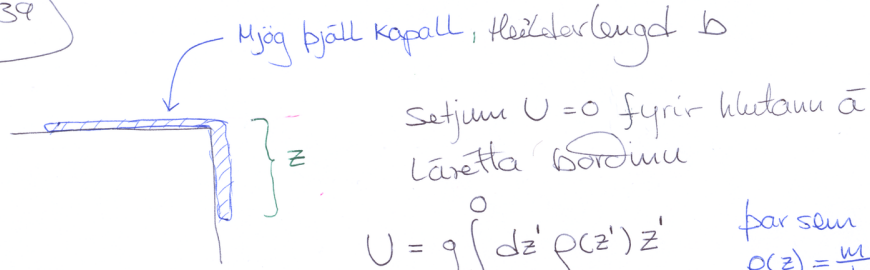 39
Mjög þjáll kapall, Heildarlengd b
Setjum U = 0 fyrir hlutann á
Lárétta borðinu
z
0
U = g ∫ dz' ρ(z') z'
þar sem
ρ(z) = m